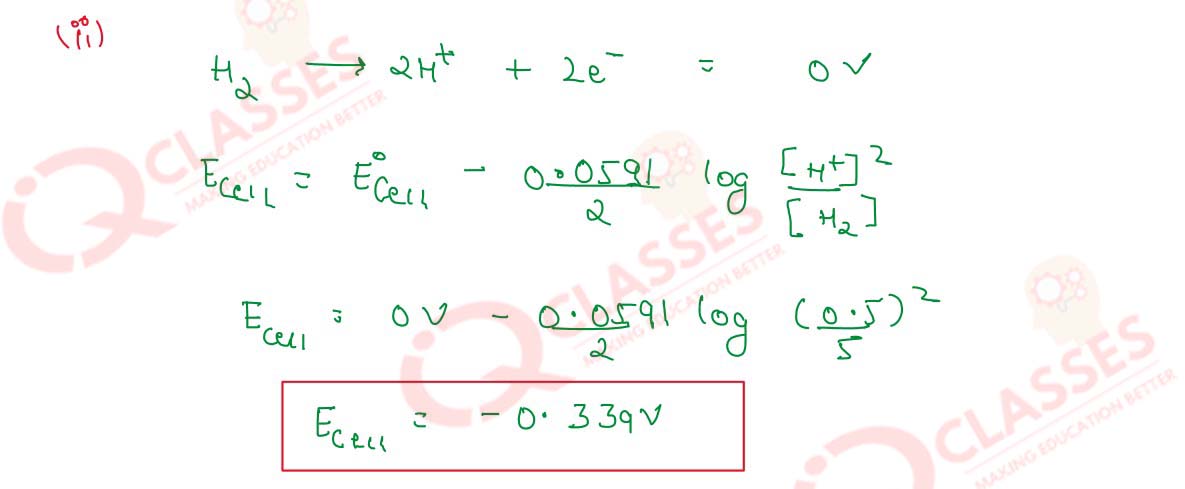 (ii)
H₂ → 2H⁺ + 2e⁻ = 0 V
E_Cell = E°_Cell - 0.0591/2 log [H⁺]²/[H₂]
E_Cell = 0V - 0.0591/2 log (0.5)²/5
E_Cell = - 0.339V
CLASSES
MAKING EDUCATION BETTER
CLASSES
MAKING EDUCATION BETTER
CLASSES
MAKING EDUCATION BETTER